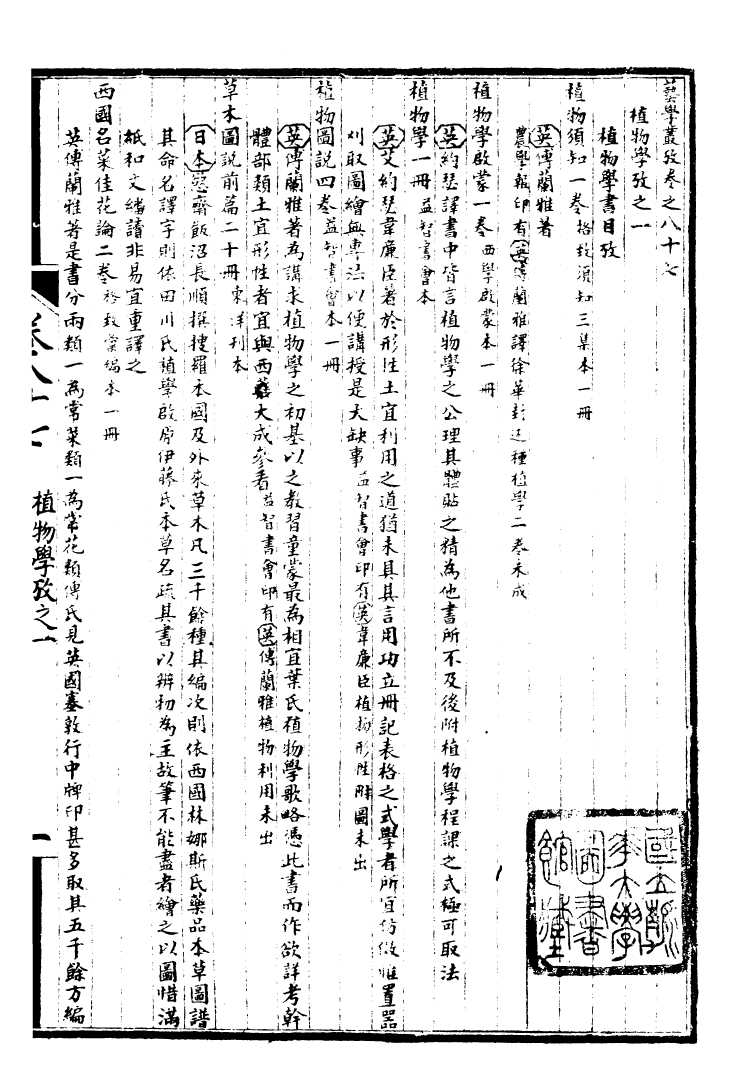 藝學叢攷卷之八十七
植物學攷之一
植物學書目攷
植物須知一卷 格致須知三集本一冊
英傅蘭雅著
農學報印有英傅蘭雅譯徐華封述種植學二卷未成
植物學啟蒙一卷 西學啟蒙本一冊
英約瑟譯書中皆言植物學之公理其體貼之精為他書所不及後附植物學程課之式極可取法
植物學一冊 益智書會本
英艾約瑟韋廉臣著於形性土宜利用之道猶未具其言用功立冊記表格之式學者所宜仿做惟置器
刈取圖繪無專法以便講授是大缺事 益智書會印有英韋廉臣植物形性解圖未出
植物圖說四卷 益智書會本一冊
英傅蘭雅著為講求植物學之初基以之教習童蒙最為相宜葉氏植物學歌略憑此書而作欲詳考幹
體部類土宜形性者宜與西藥大成參看 益智書會印有英傅蘭雅植物利用未出
草木圖說前篇二十冊 東洋刊本
日本慾齋飯沼長順撰搜羅本國及外來草木凡三千餘種其編次則依西國林娜斯氏藥品本草圖譜
其命名譯字則依田川氏植學啟原伊藤氏本草名疏其書以辨初為主故筆不能盡者繪之以圖惜滿
紙和文繙讀非易宜重譯之
西國名菜佳花論二卷 格致彙編本一冊
英傅蘭雅著是書分兩類一為常菜類一為常花類傅氏見英國塞敦行中牌印甚多取其五千餘方編
卷八十七
植物學攷之一
一
國立北
平大學
圖書
館藏